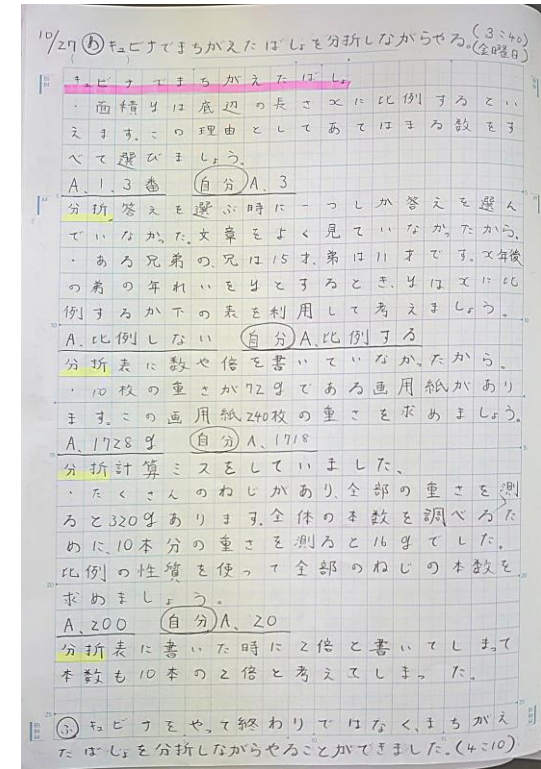 10/27 め キュビナでまちがえたばしょを分折しながらやる。(3:40)(金曜日)
キュビナでまちがえたばしょ
・面積yは底辺の長さxに比例するとい
えます。この理由としてあてはまる数をす
べて選びましょう。
A、1、3番 自分 A、3
分折、答えを選ぶ時に一つしか答えを選ん
でいなかった。文章をよく見ていなかったから、
・ある兄弟の、兄は15才、弟は11才です。x年後
の弟の年れいをyとするとき、yはxに比
例するか下の表を利用して考えましょう。
A、比例しない 自分 A、比例する
分折表に数や倍を書いていなかったから。
・10枚の重さが72gである画用紙があり
ます。この画用紙240枚の重さを求めましょう。
A、1728g 自分 A、1718
分折計算ミスをしていました、
・たくさんのねじがあり、全部の重さを測
ると320gあります。全体の本数を調べるた
めに、10本分の重さを測ると16gでした。
比例の性質を使って全部のねじの本数を
求めましょう。
A、200 自分 A、20
分折表に書いた時に2倍と書いてしまって
本数も10本の2倍と考えてしまった。
ふ キュビナをやって終わりではなく、まちがえ
たばしょを分折しながらやることができました。(4:10)